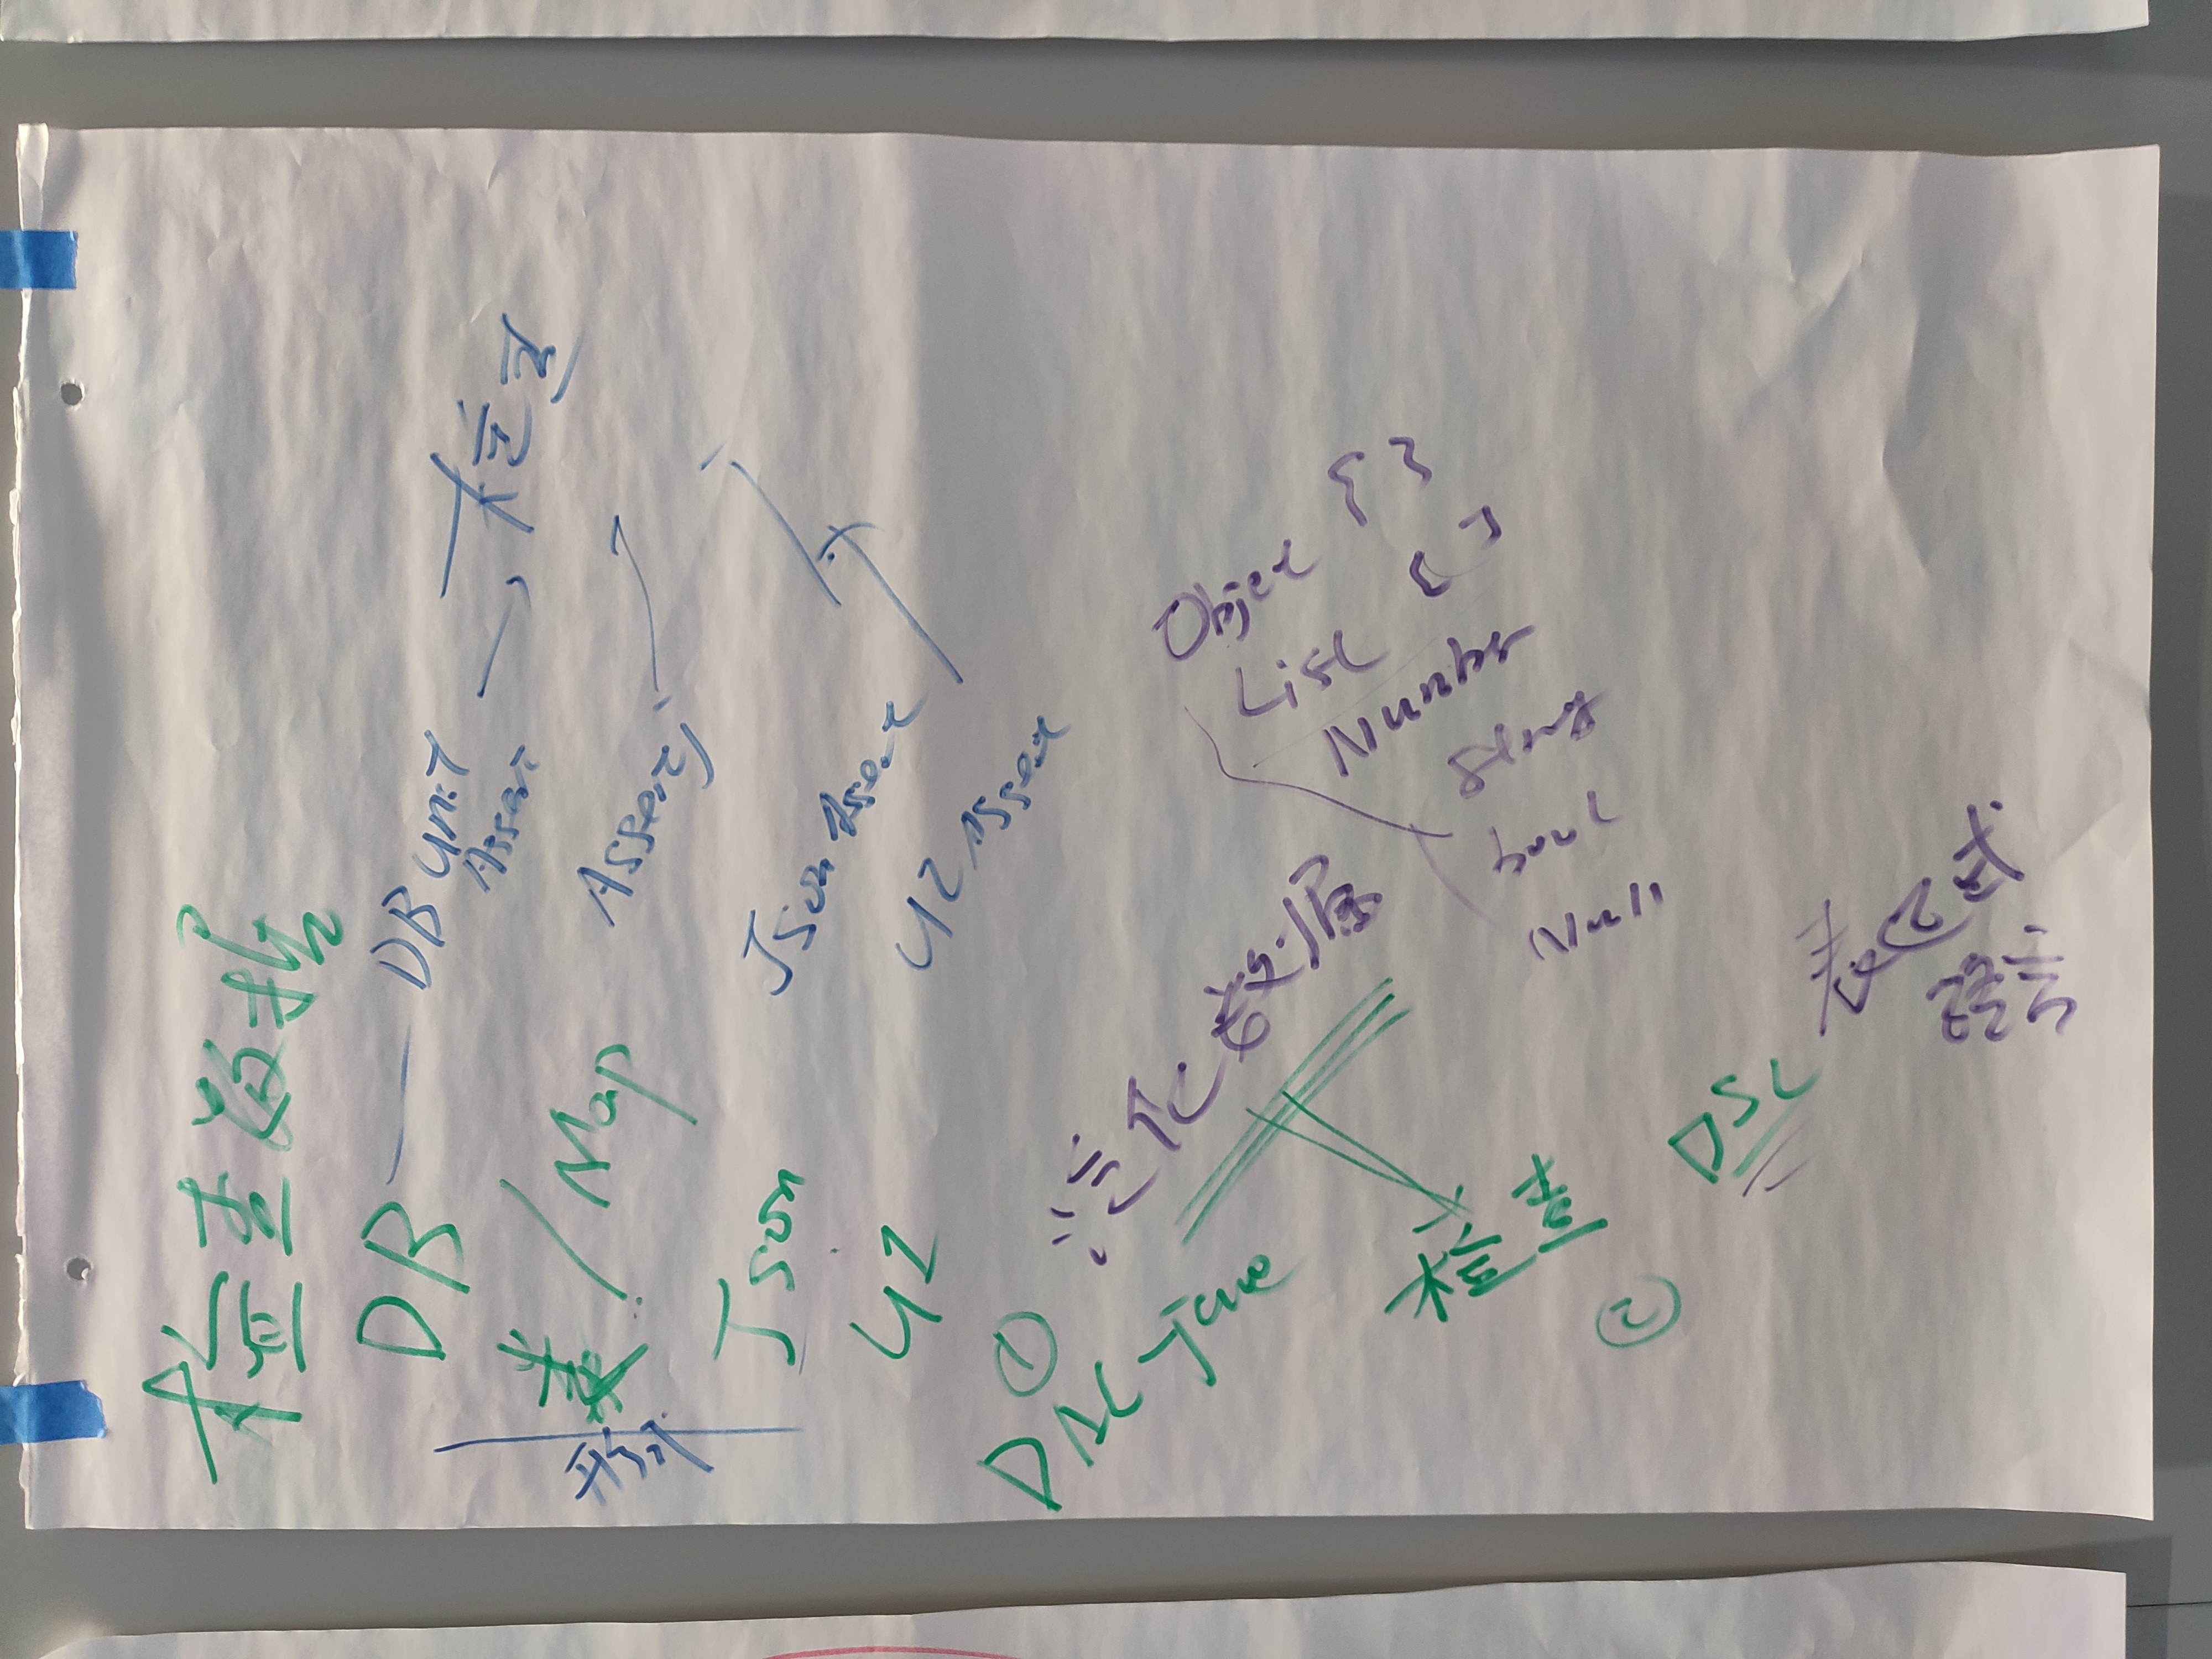 检查数据
DB — DB unit Assert → 检查
类 / Map Assertj
形式
Json Json Assert
UI UI Assert
①
DAL Java
泛化数据
Object { }
List [ ]
Number
String
bool
Null
检查
②
DSL
表达式
语言